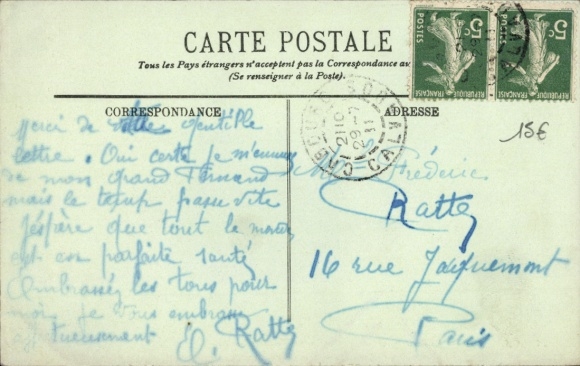 CARTE POSTALE
Tous les Pays étrangers n'acceptent pas la Correspondance au
(Se renseigner à la Poste).
CORRESPONDANCE
ADRESSE
5c
POSTES
RÉPUBLIQUE FRANÇAISE
5c
POSTES
RÉPUBLIQUE FRANÇAISE
15€
Merci de votre gentille
lettre. Oui certe je m'ennuie
de mon grand Fernand
mais le temps passe vite
J'éspère que tout le monde
est en parfaite santé
Embrassez les tous pour
moi. Je vous embrasse
affectueusement
Ratte
Frédéric
Ratte
16 rue Jacquemont
Paris